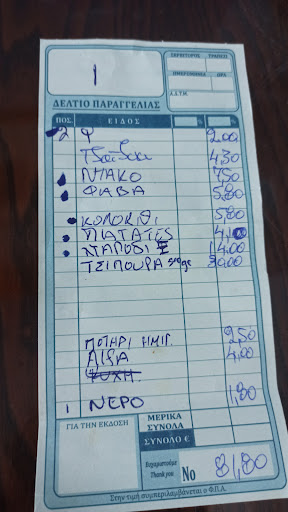 ΣΕΡΒΙΤΟΡΟΣ ΤΡΑΠΕΖΙ
ΗΜΕΡΟΜΗΝΙΑ ΩΡΑ
1
Δ.Δ.Τ.Μ.
ΔΕΛΤΙΟ ΠΑΡΑΓΓΕΛΙΑΣ
ΠΟΣ. ΕΙΔΟΣ
2 Ψ 2.00
4,30
ΝΤΑΚΟ 7,50
ΦΑΒΑ 5,80
ΚΟΛΟΚΙΘΙ 5,80
ΠΑΤΑΤΕΣ
14.00
ΤΣΙΠΟΥΡΑ 30.00
ΠΟΤΗΡΙ ΗΜΙΓ. 2,50
4,00
ΨΥΧΗ
1 ΝΕΡΟ 1,80
ΓΙΑ ΤΗΝ ΕΚΔΟΣΗ
ΜΕΡΙΚΑ ΣΥΝΟΛΑ
ΣΥΝΟΛΟ €
Ευχαριστούμε
Thank you
No 81,80
Στην τιμή συμπεριλαμβάνεται ο Φ.Π.Α.